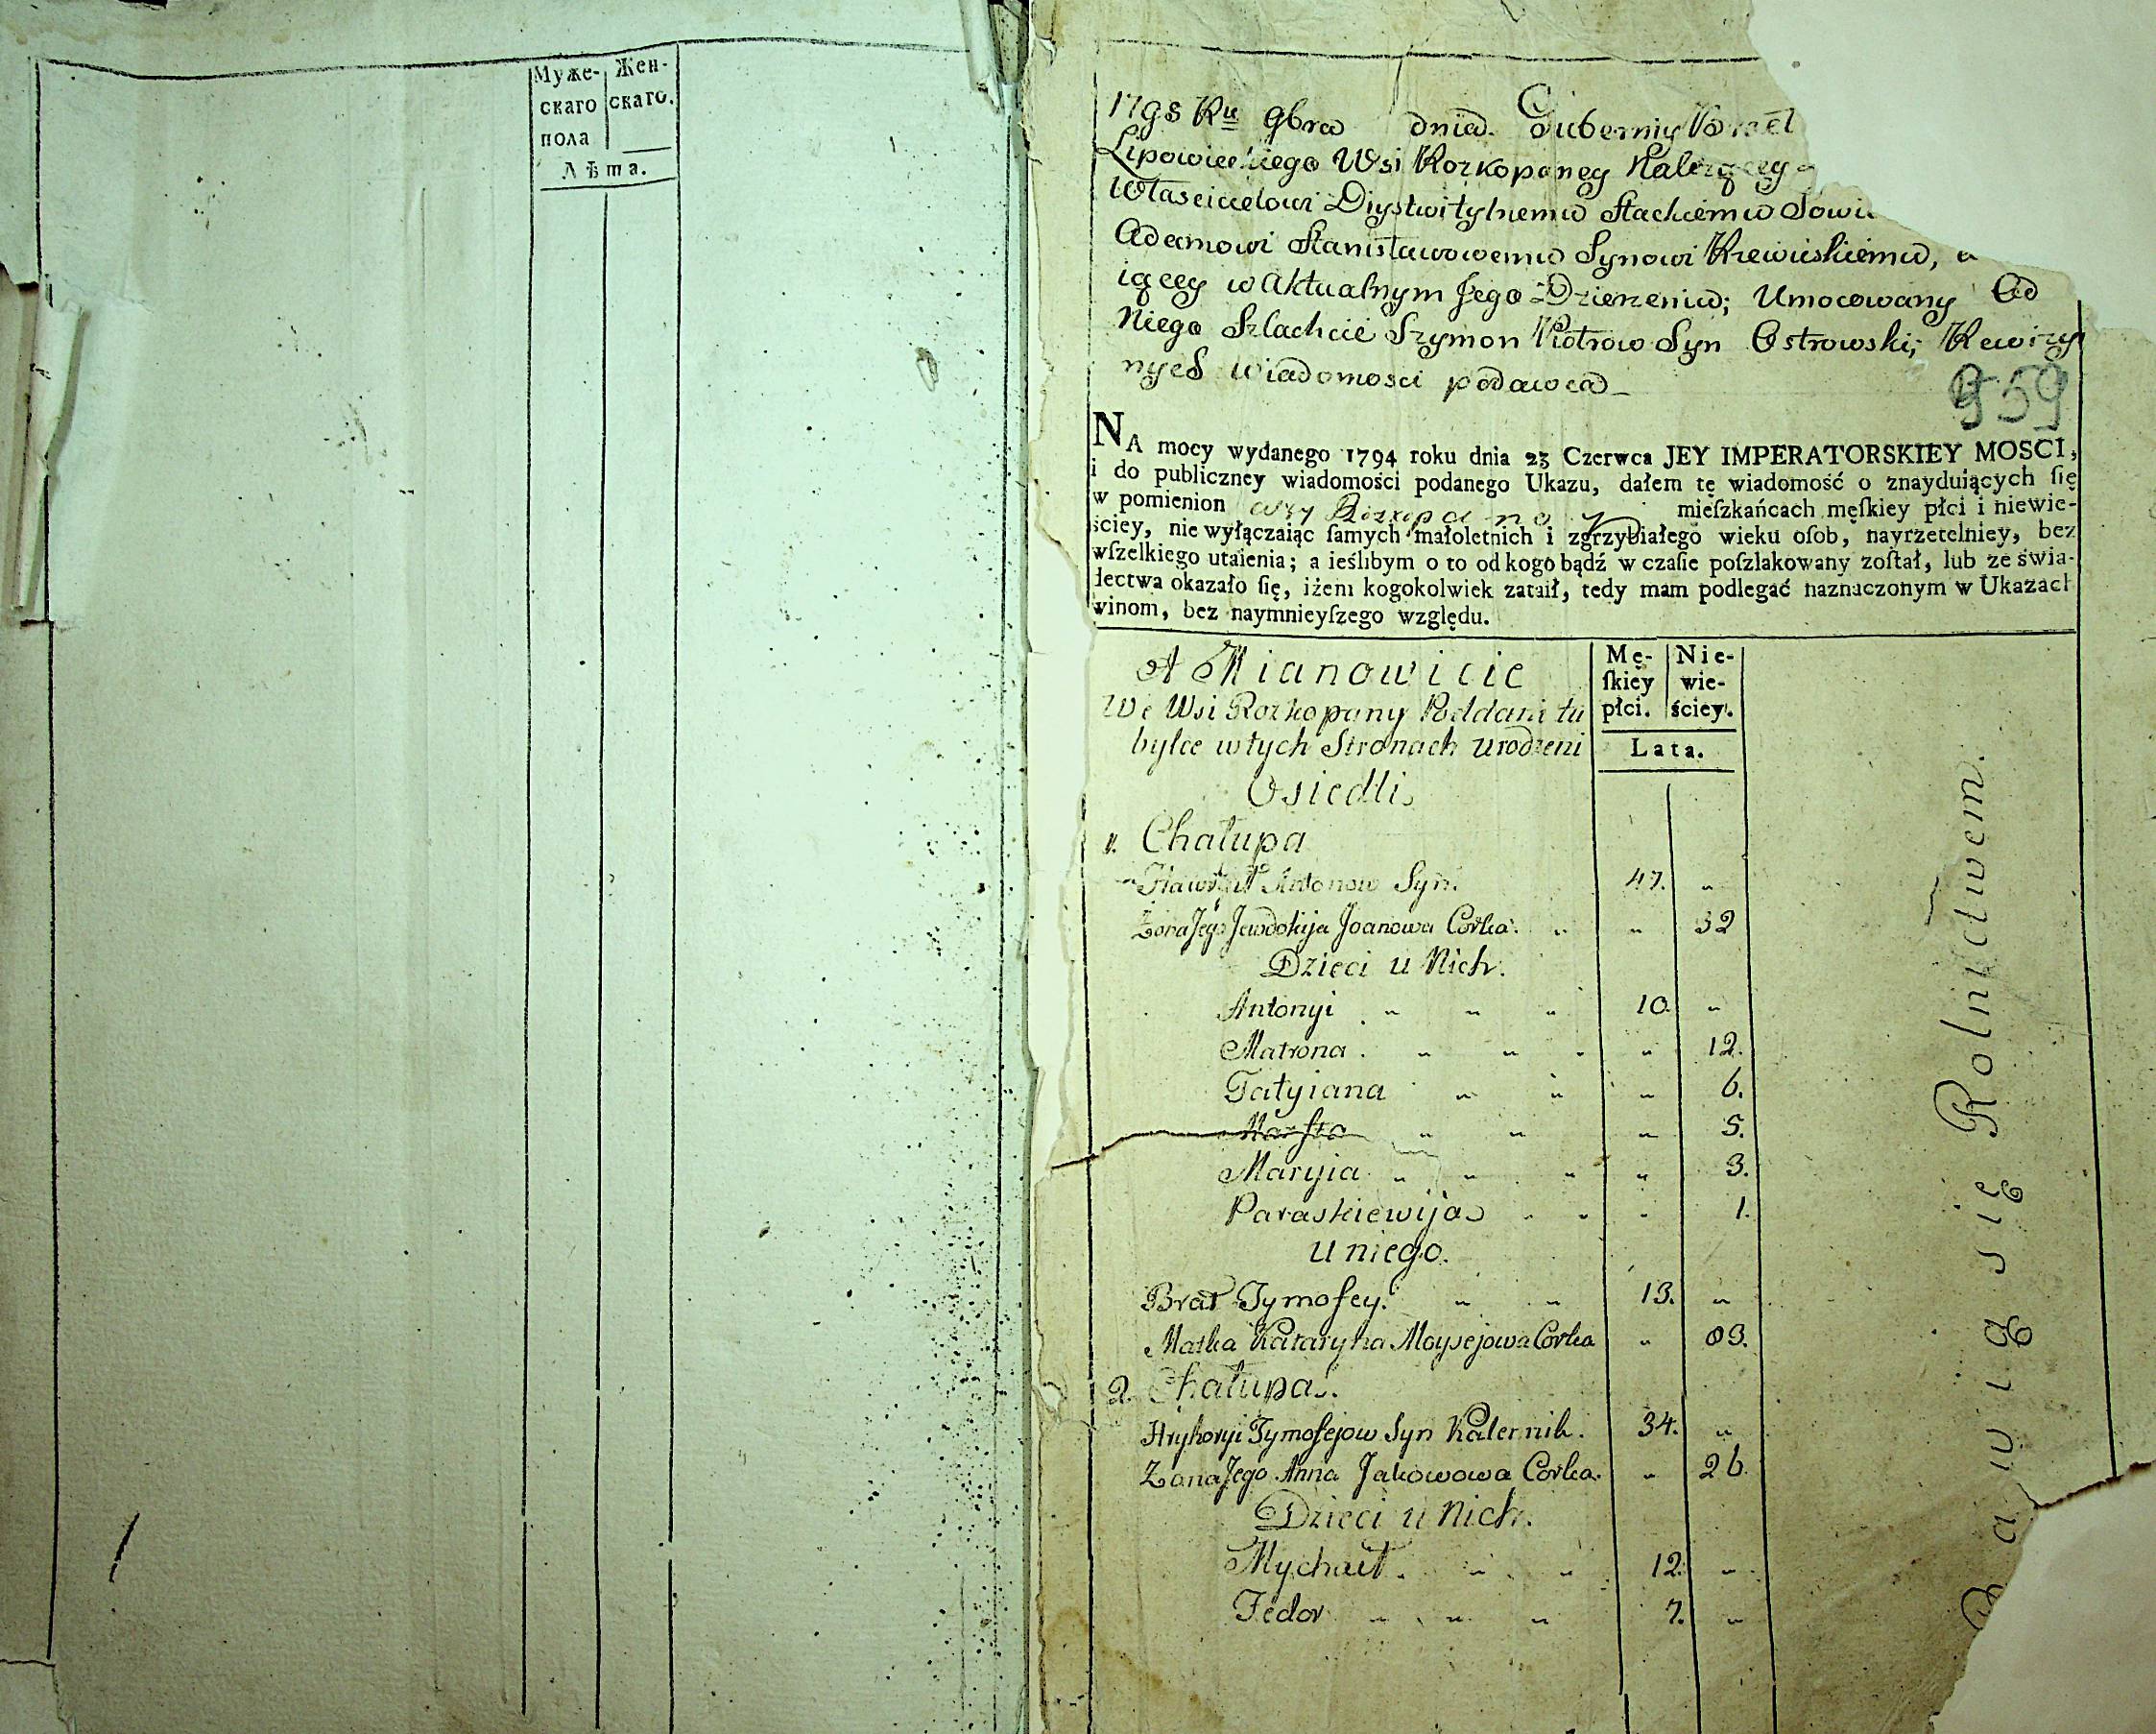 Муже- Жен-
скаго скаго.
пола
Лѣта.
1795 Ru 9bra dnia Guberniy
Lipowieckiego Wsi Rozkopaney Należącey
Własciwielowi Diystwitylnemu Stackiemu Sowie
Adamowi Stanisławowemu Synowi Rzewuskiemu, a
iącey w Aktualnym Jego Dzierzeniu; Umocowany Od
Niego Szlachcić Szymon Piotrow Syn Ostrowski; Rewizy
nyeś wiadomosci podawca
959
NA mocy wydanego 1794 roku dnia 23 Czerwca JEY IMPERATORSKIEY MOSCI,
i do publiczney wiadomości podanego Ukazu, dałem tę wiadomość o znayduiących ſię
w pomienion wsy Rozkopaney mieſzkańcach męſkiey płci i niewie-
ściey, nie wyłączaiąc ſamych małoletnich i zgrzybiałego wieku oſob, nayrzetelniey, bez
wſzelkiego utaienia; a ieślibym o to od kogo bądź w czaſie poſzlakowany zoſtał, lub ze świa-
dectwa okazało ſię, iżem kogokolwiek zataił, tedy mam podlegać naznaczonym w Ukazach
winom, bez naymnieyſzego względu.
A Mianowicie
We Wsi Rozkopany Poddani tu
bylce w tych Stronach urodzeni
Osiedli
Mę- Nie-
ſkiey wie-
płci. ściey.
Lata.
1. Chałupa
Hawrył Antonow Syn. 47. "
Żona Jego Jewdokija Joanowa Corka. " " 32
Dzieci u Nich.
Antonyi " " " 10. "
Matrona . " " " " 12.
Tatyiana " " " 6.
Marfta " " " 5.
Maryia " " " " 3.
Paraskiewija " " " 1.
U niego.
Brat Tymofey. " " 13. "
Matka Kataryna Moysejowa Corka " 03.
2. Chałupa.
Hryhoryi Tymofejow Syn Kalernik. 34. "
Żona Jego Anna Jakowowa Corka. " 26.
Dzieci u Nich.
Mychaił. " " 12. "
Fedor " " " 7. "
Bawią się Rolnictwem.